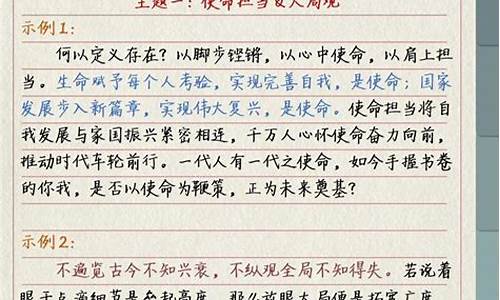 主题一：使命担当&大局观
示例1：
何以定义存在？以脚步铿锵，以心中使命，以肩上担
当。生命赋予每个人考验，实现完善自我，是使命；国家
发展步入新篇章，实现伟大复兴，是使命。使命担当将自
我发展与家国振兴紧密相连，千万人心怀使命奋力向前，
推动时代车轮前行。一代人有一代之使命，如今手握书卷
的你我，是否以使命为鞭策，正为未来奠基？
示例2：
不遍览古今不知兴衰，不纵观全局不知得失。若说着
眼于点滴细节是垒起高度，那么放眼大局便是拓宽广度